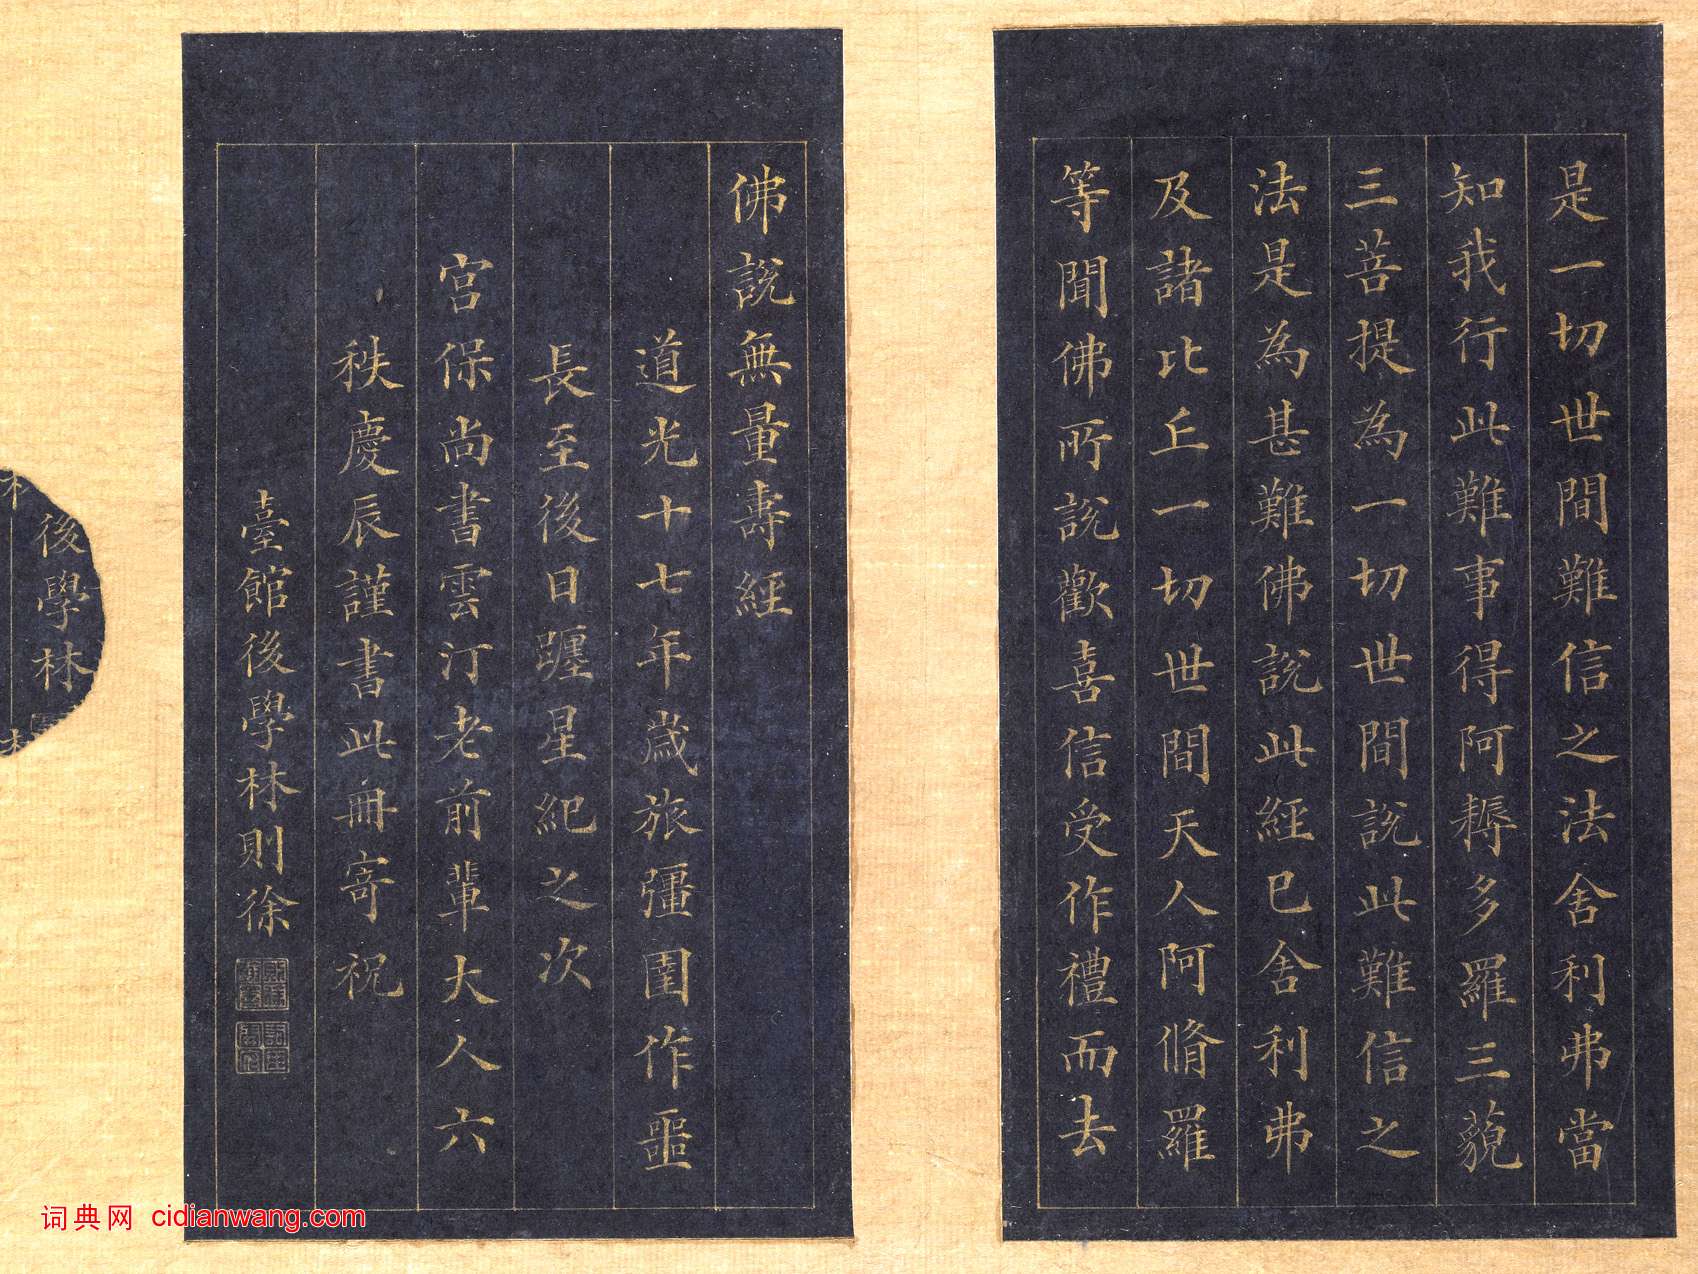 是一切世間難信之法舍利弗當
知我行此難事得阿耨多羅三藐
三菩提為一切世間說此難信之
法是為甚難佛說此經已舍利弗
及諸比丘一切世間天人阿脩羅
等聞佛所說歡喜信受作禮而去
佛說無量壽經
道光十七年歲旅彊圉作噩
長至後日躔星紀之次
宮保尚書雲汀老前輩大人六
秩慶辰謹書此冊寄祝
臺館後學林則徐
後學林
词典网 cidianwang.com